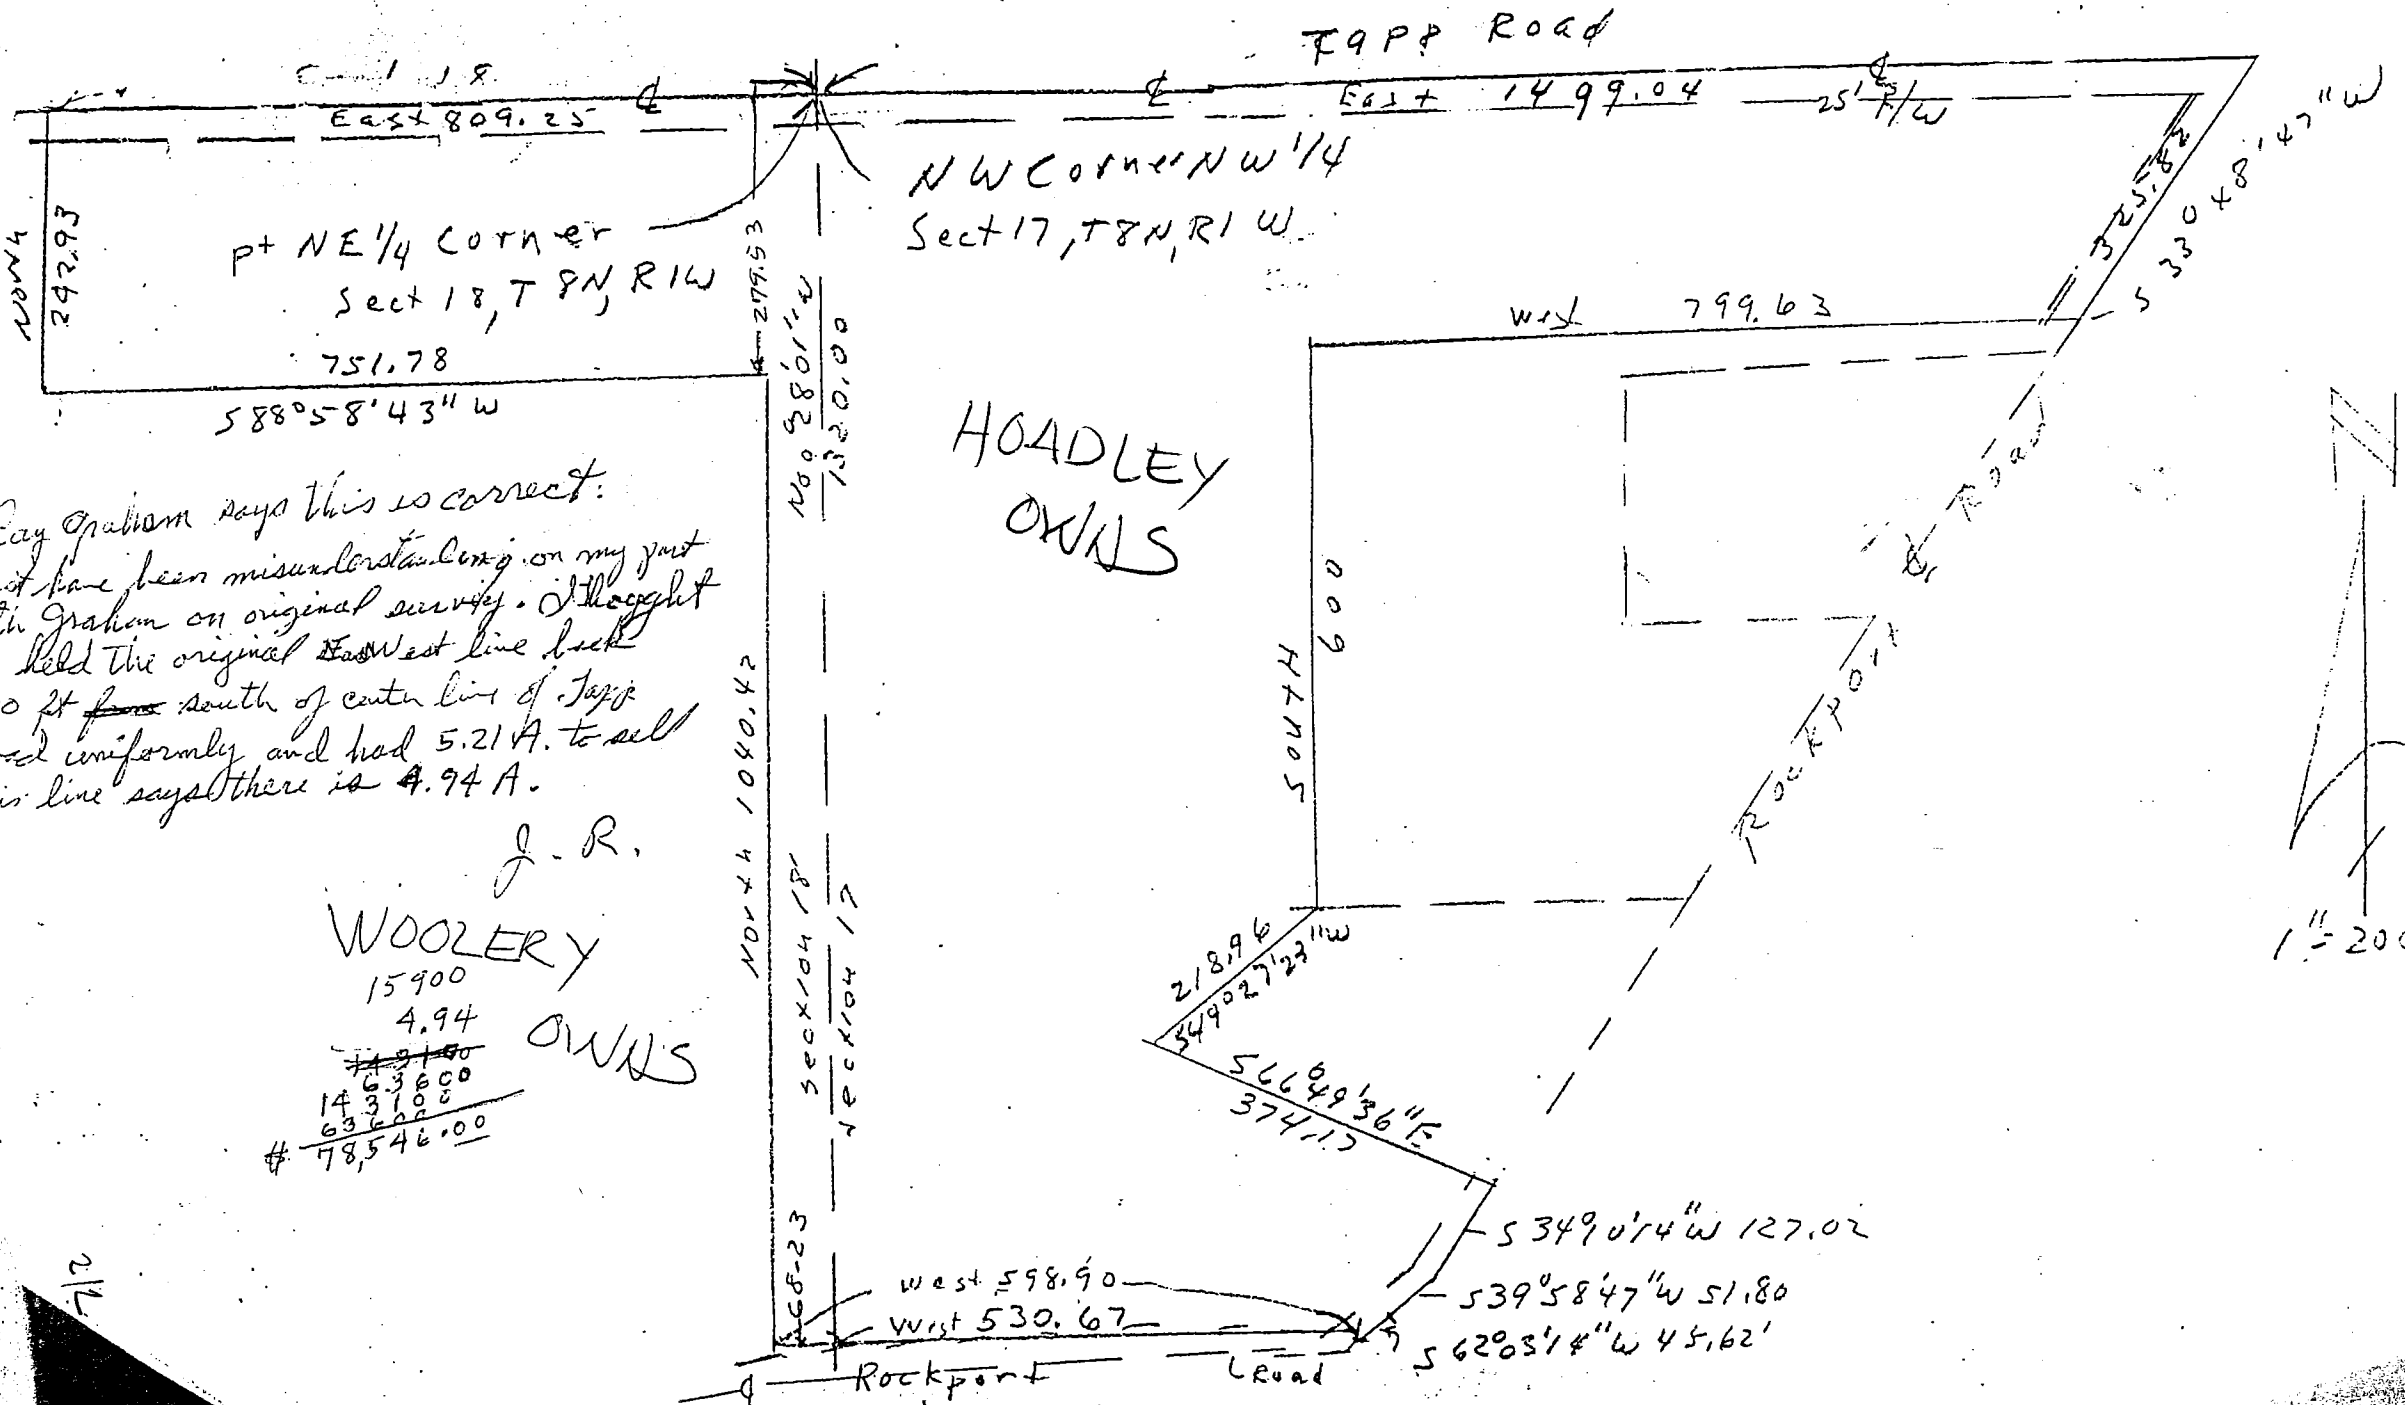 Tapp Road
East 809.25
East 1499.04
25' R/W
325.82
S 33° 48' 47" W
NW Corner NW 1/4
Sect 17, T8N, R1 W.
pt NE 1/4 Corner
Sect 18, T 8N, R1W
North
242.93
279.53
N 00° 28' 01" W
1320.00
751.78
S 88° 58' 43" W
West 799.63
HOADLEY
OWNS
SOUTH
600
Rockport Road
N
1" = 200
Ray Graham says this is correct:
have been misunderstanding on my part
Graham on original survey. I thought
held the original West line back
ft from south of center line of Tapp
uniformly and had 5.21 A. to sell
line says there is 4.94 A.
J. R.
WOOLERY
OWNS
15900
4.94
143100
63600
143100
63600
$ 78,546.00
North 1040.42
Section 18
Section 17
218.96
S49° 27' 23" W
S 66° 49' 36" E
374.17
S 34° 10' 14" W 127.02
S 39° 58' 47" W 51.80
S 62° 03' 14" W 45.62'
68.23
West 598.90
West 530.67
Rockport Road
7/2